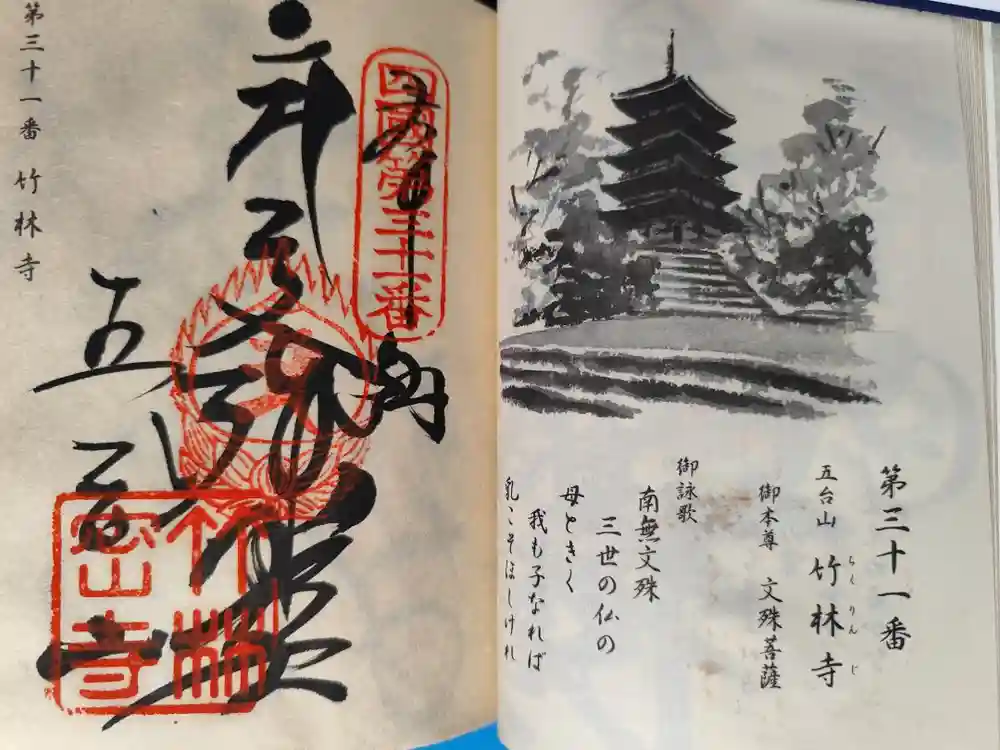 第三十一番
五台山 竹林寺
ちくりんじ
御本尊 文殊菩薩
御詠歌
南無文殊
三世の仏の
母ときく
我も子なれば
乳こそほしけれ
四國第三十一番
奉納
五台山
竹林
密寺
第三十一番 竹林寺